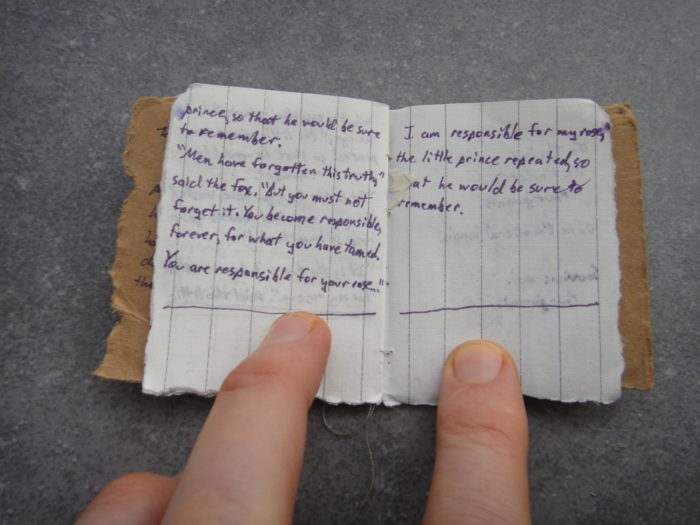 prince, so that he would be sure
to remember.
"Men have forgotten this truth,"
said the fox. "But you must not
forget it. You become responsible,
forever, for what you have tamed.
You are responsible for your rose..."
I am responsible for my rose,
the little prince repeated, so
at he would be sure to
remember.